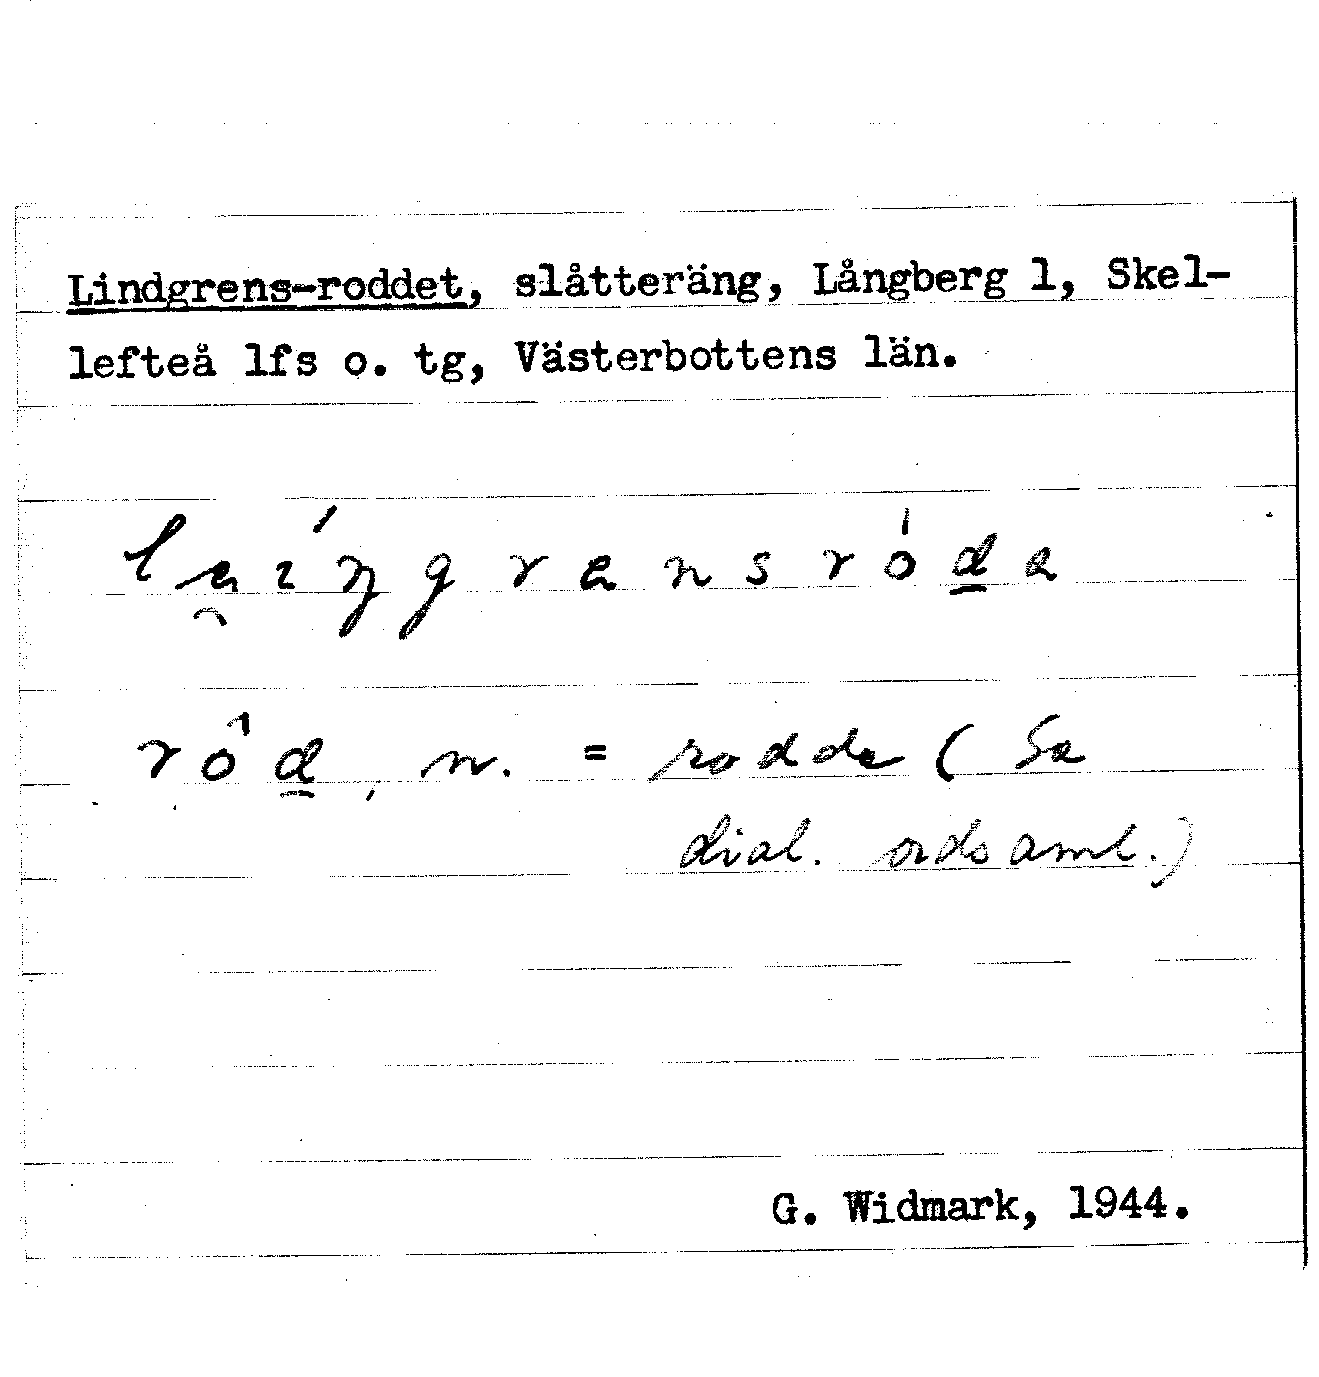 Lindgrens-roddet, slåtteräng, Långberg 1, Skel-
lefteå lfs o. tg, Västerbottens län.
rô̂d, n. = rodde (Se
dial. ordsaml.)
G. Widmark, 1944.